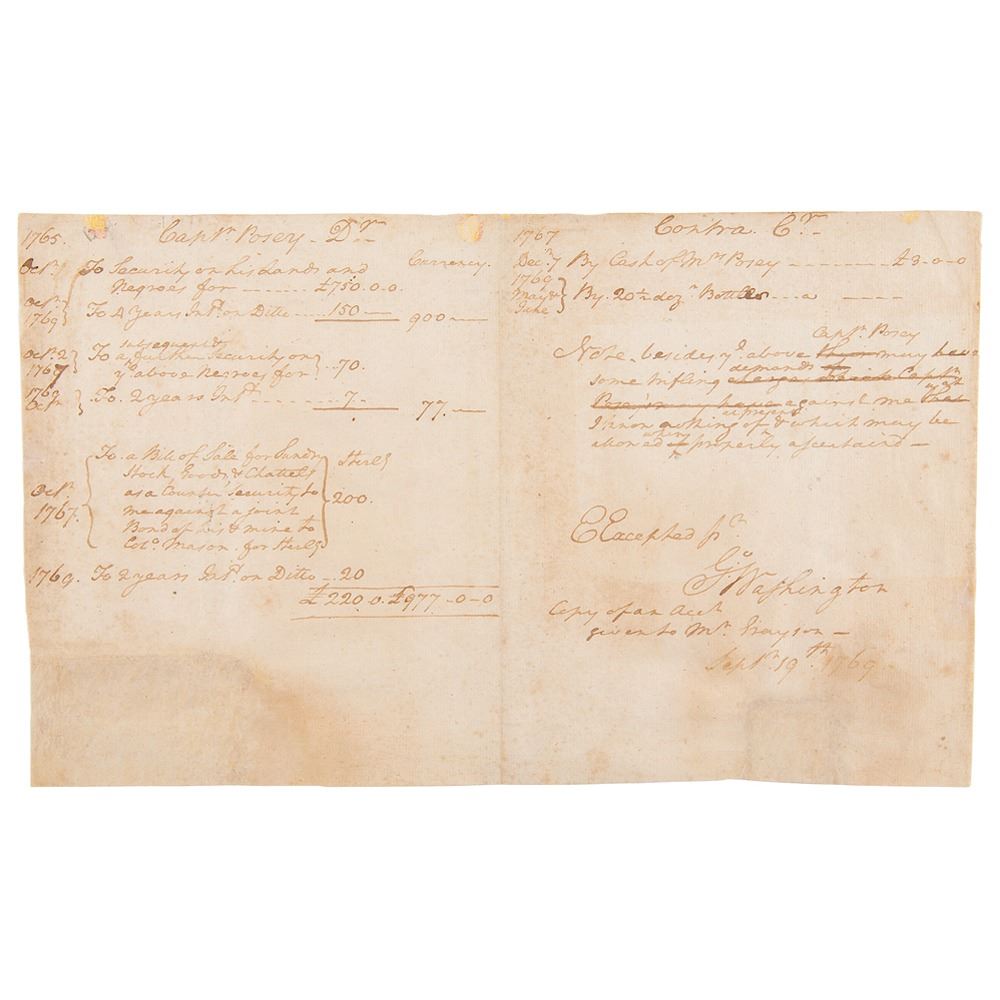 1765. Captn. Posey - Dr.
Currency.
Octr. 7 To Security on his Lands and
Negroes for ------- £750.0.0.
Octr. 1769 To 4 years Intt. on Ditto --- 150 — 900 —
subsequent
Octr. 2 1767 To a further Security on
ye. above Negroes for 70.
1769 Octr. To 2 years Intt. -------- 7 - 77 —
To a Bill of Sale for Sundry Sterlg
Stock, Goods & Chattels
Octr. as a Counter Security to 200.
1767. me against a joint
Bond of his & mine to
Colo. Mason for Sterlg
1769. To 2 years Intt. on Ditto - 20
£220.0. £977-0-0
1767 Contra Cr.
Decr. 7 By Cash of Mrs Posey ------- £3-0-0
1769
May & June By 20 dozn. Bottles --- a ----
Captn. Posey
Note, besides ye. above may have
demands
some trifling charges which Captn
Posey may have against me that
at present
I know nothing of & which may be
when
allowed if properly ascertaind —
E Excepted pr.
Go. Washington
Copy of an Acct
given to Mr. Grayson —
Septr. 19th. 1769